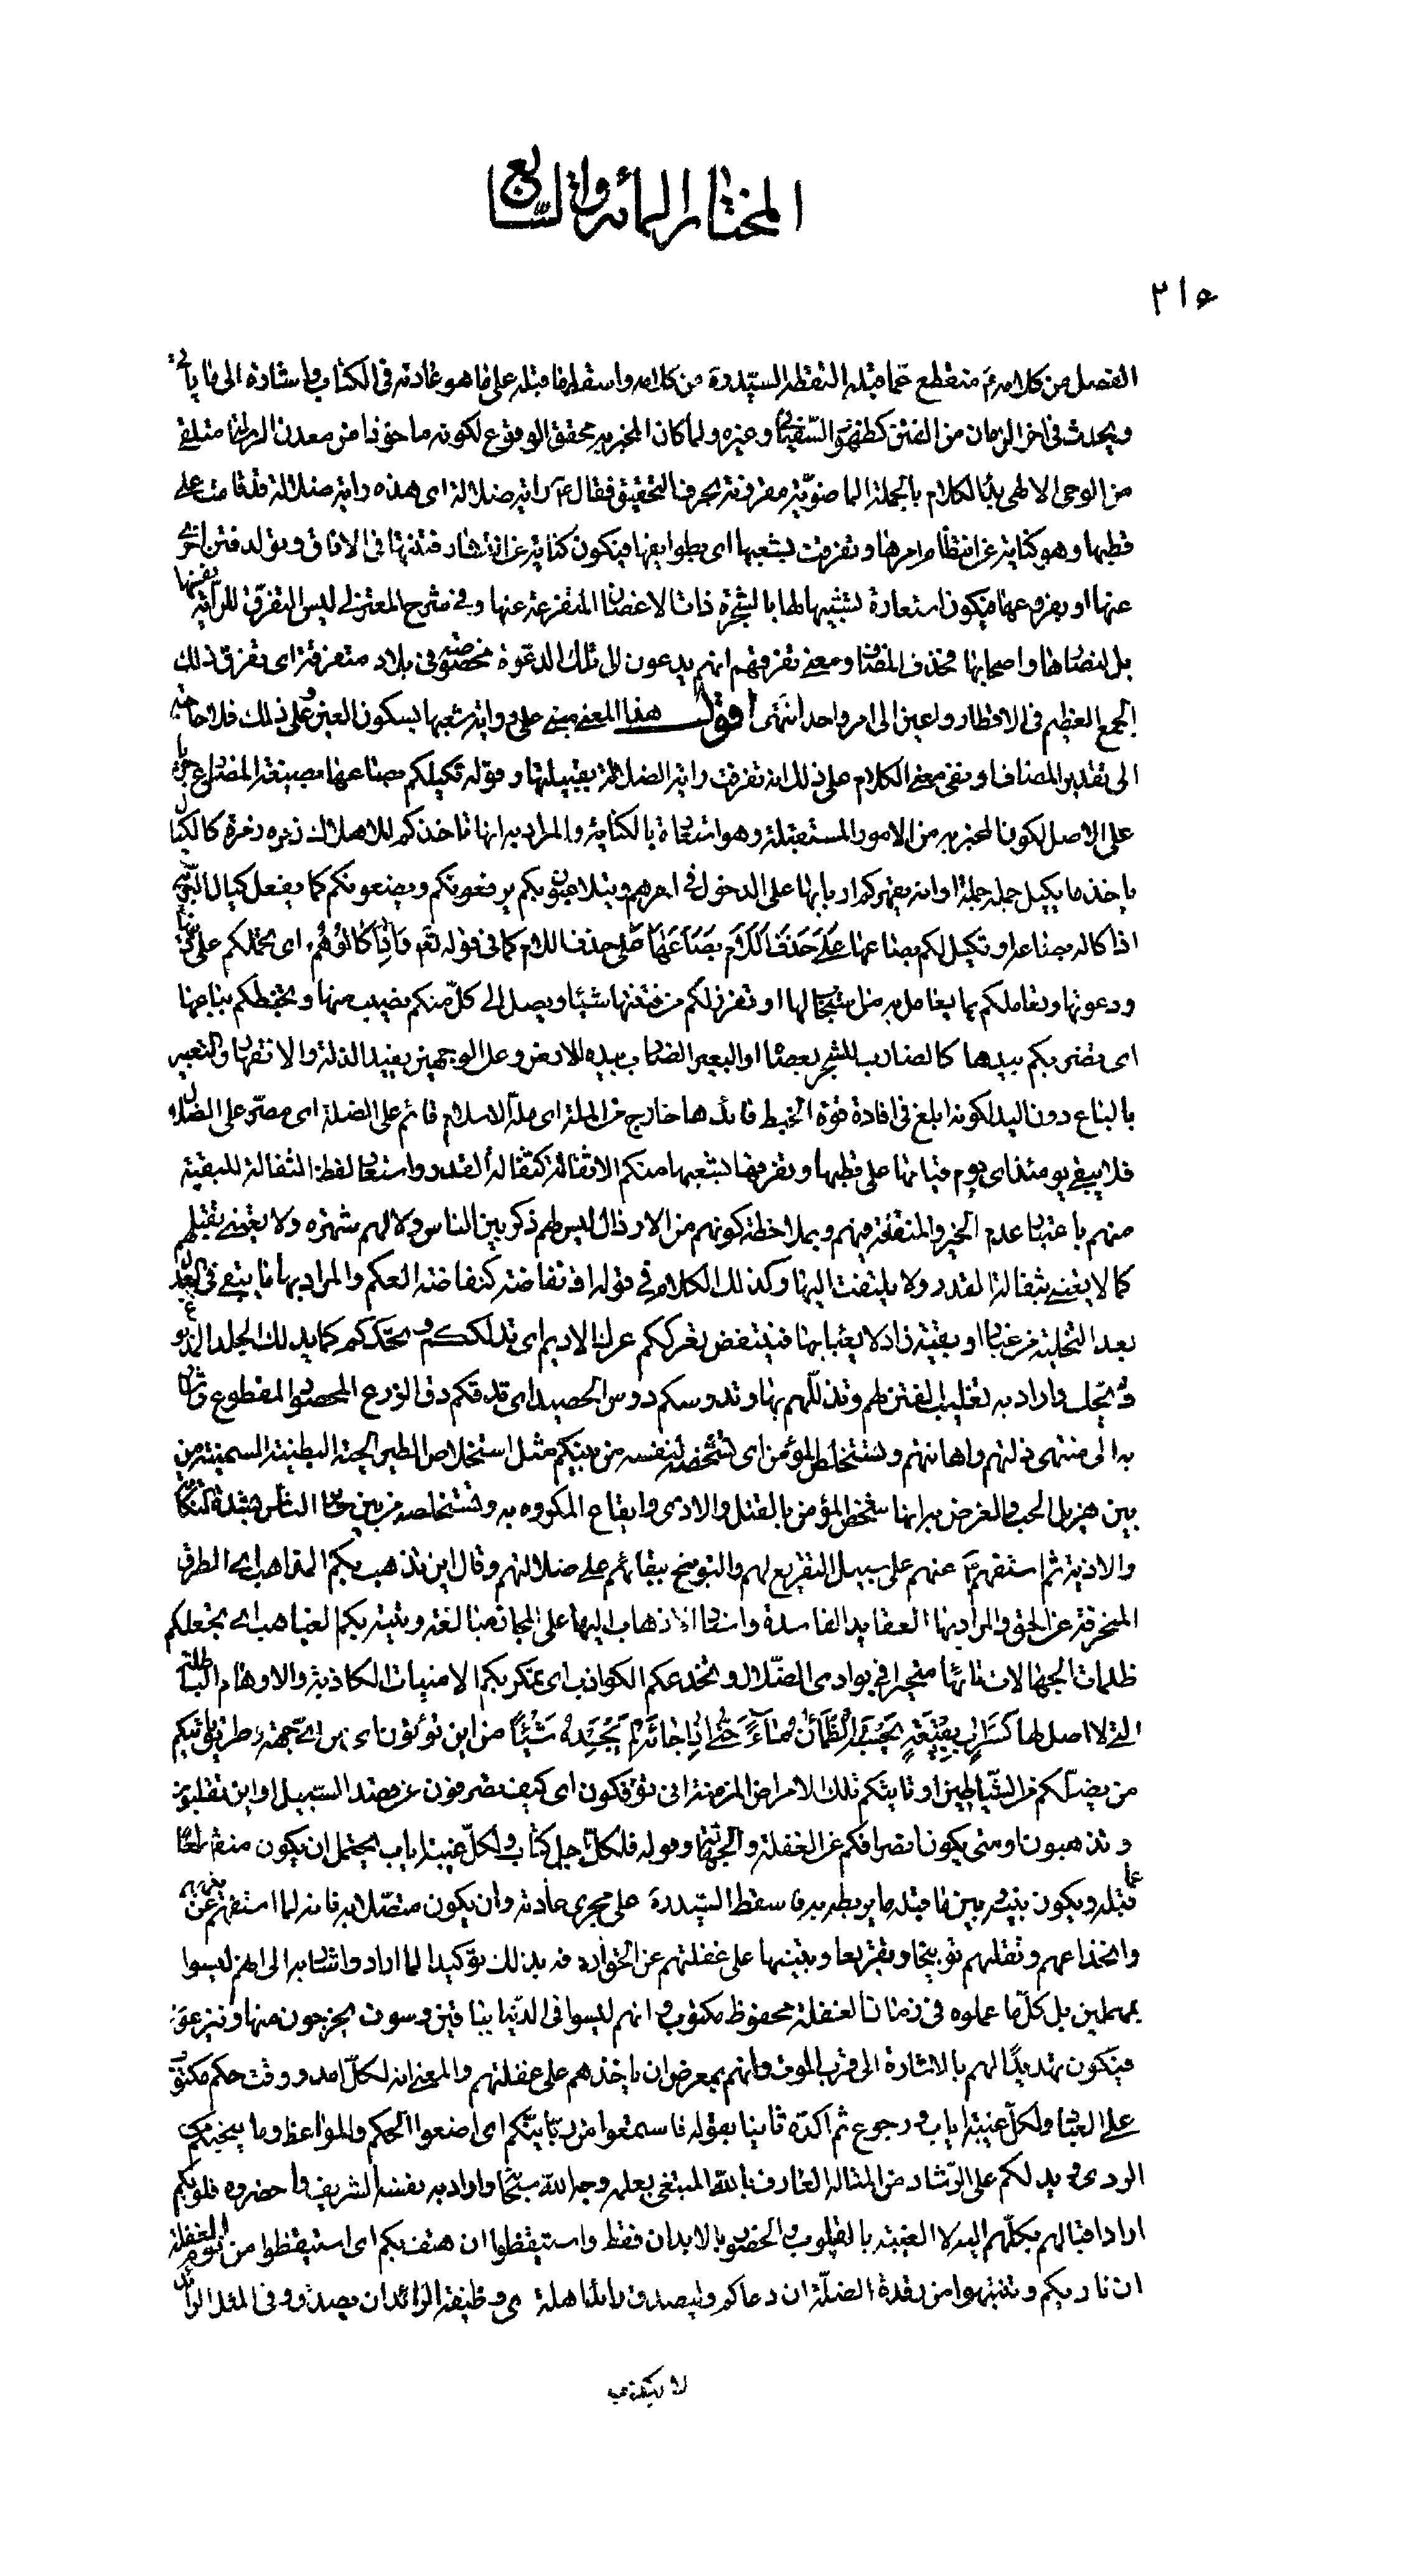 المختار المائة والسابع
٢١٥
الفصل من كلامه ع منقطع عما قبله التقطه السيد ره من كلامه واسقط ما قبله على ما هو عادته في الكتاب واشارة الى ما يأتى
ويحدث في اخر الزمان من الفتن كظهور السفيانى وغيره ولما كان المخبر به محقق الوقوع لكونه ماخوذا من معدن الرسالة متلقى
من الوحى الالهى بدأ الكلام بالجملة الماضوية مقرونة بحرف التحقيق فقال ع راية ضلالة اى هذه راية ضلالة قد قامت على
قطبها وهو كناية عن انتظام امرها وتفرقت بشعبها اى بطوايفها فيكون كناية عن انتشار فتنتها في الافاق وتولد فتن اخرى
عنها او بفروعها فيكون استعارة لتشبيهها لها بالشجرة ذات الاغصان المتفرعة عنها وفى شرح المعتزلى ليس التفرق للراية نفسها
بل لنصارها واصحابها فحذف المضاف ومعنى تفرقهم انهم يدعون الى تلك الدعوة مخصوصة فى بلاد متفرقة اى تفرق ذلك
الجمع العظيم فى الاقطار داعين الى امر واحد انتهى اقول هذا المعنى مبنى على رواية شعبها بسكون العين وعلى ذلك فلا حاجة
الى تقدير المضاف ومعنى الكلام على ذلك انه تفرقت راية الضلالة بقبيلتها وقوله تكيلكم بصاعها بصيغة المضارع جريا
على الاصل لكون المخبر به من الامور المستقبلة وهو استعارة بالكناية والمراد به انها تاخذكم للاهلاك زمرة زمرة كالكيال
ياخذ ما يكيل جملة جملة او انه يقهركم اربابها على الدخول فى امرهم ويتلاعبون بكم يرفعونكم ويضعونكم كما يفعل كيال البر به
اذا كاله بصاعه او تكيل لكم بصاعها على حذف اللام كما فى قوله تعالى واذا كالوهم اى تحملكم على دينها
ودعوتها وتعاملكم بما يعامل به من استجاب لها او تفرز لكم من فتنتها شيئا ويصل الى كل منكم نصيب منها وتخبطكم بباعها
اى تضربكم بيدها كالضارب للشجر بعصا او البعير الضارب بيده الارض وعلى الوجهين يفيد الذلة والانقهار والتعبير
بالباع دون اليد لكونه ابلغ فى افادة قوة الخبط قائدها خارج من الملة اى ملة الاسلام قائم على الضلة اى مصر على الضلال
فلا يبقى يومئذ اى يوم قيامها على قطبها وتفرقها بشعبها منكم الا ثفالة كثفالة القدر واستعار لفظ الثفالة للبقية
منهم باعتبار عدم الخير والمنفعة فيهم وبملاحظة كونهم من الارذال ليس لهم ذكر بين الناس ولا لهم شهرة ولا يعتنى بقتلهم
كما لا يعتنى بثفالة القدر ولا يلتفت اليها وكذلك الكلام فى قوله او نفاضة كنفاضة العكم والمراد بها ما يبقى فى العدل
بعد التخلية من غبار او بقية زاد لا يعبا بها فينتفض تعرككم عرك الاديم اى تدلككم وتحككم كما يدلك الجلد المدبوغ
واراد به تغليب الفتن لهم وتذللهم بها وتدوسكم دوس الحصيد اى تدقكم دق الزرع المحصود المقطوع واشار
به الى منتهى ذلتهم واهانتهم وتستخلص المؤمن اى تستخصه لنفسه من بينكم مثل استخلاص الطير الحبة البطينة السمينة من
بين هزيل الحب والغرض به انها تخص المؤمن بالقتل والاذى وايقاع المكروه به وتستخلصه من بين الناس بشدة النكاية
والاذية ثم استفهم ع عنهم على سبيل التقريع لهم والتوبيخ ببقائهم على ضلالتهم وقال اين تذهب بكم المذاهب اى الطرق
المنحرفة عن الحق والمراد بها العقايد الفاسدة واسناد الاذهاب اليها على المجاز مبالغة وتتيه بكم الغياهب اى تجعلكم
ظلمات الجهالات تائها متحيرا فى بوادى الضلال وتخدعكم الكواذب اى تمكر بكم الامنيات الكاذبة والاوهام الباطلة
التى لا اصل لها كسراب بقيعة يحسبه الظمان ماء حتى اذا جائه لم يجده شيئا من اين تؤتون اى من اى جهة وطريق ياتيكم
من يضلكم من الشياطين او تاتيكم تلك الامراض المزمنة انى تؤفكون اى كيف تصرفون عن قصد السبيل او اين تقلبون
وتذهبون او متى يكون انصرافكم عن الغفلة والجهالة وقوله فلكل اجل كتاب ولكل غيبة اياب يحتمل ان يكون منقطعا
عما قبله ويكون بينه وبين ما قبله ما يربطه به فاسقط السيد ره على مجرى عادته وان يكون متصلا به فانه لما استفهم عن
وانخداعهم وتقلبهم توبيخا وتقريعا وتنبيها على غفلتهم عن الحق اردفه بذلك توكيدا لما اراد واشارة الى انهم ليسوا
بمهملين بل كل ما عملوه فى زمان الغفلة محفوظ مكتوب وانهم ليسوا فى الدنيا بباقين وسوف يخرجون منها
فيكون تهديدا لهم بالاشارة الى قرب الموت وانهم بمعرض ان ياخذهم على غفلتهم والمعنى ان لكل امد ووقت حكم مكتوب
على العباد ولكل غيبة اياب ورجوع ثم اكده ثانيا بقوله فاستمعوا من ربانيكم اى اصغوا الحكم والمواعظ وما ينجيكم من
الردى ويدلكم على الرشاد من المتاله العارف بالله المبتغى بعلمه وجه الله سبحانه واراد به نفسه الشريف واحضروه قلوبكم
اراد اقبالهم بكلهم اليه لا الغيبة بالقلوب والحضور بالابدان فقط واستيقظوا ان هتف بكم اى استيقظوا من نوم الغفلة
ان ناديكم وتنبهوا من رقدة الضلة ان دعاكم وليصدق رائد اهله وظيفة الرائد ان يصدق وفى المثل الرائد
لا يكذب